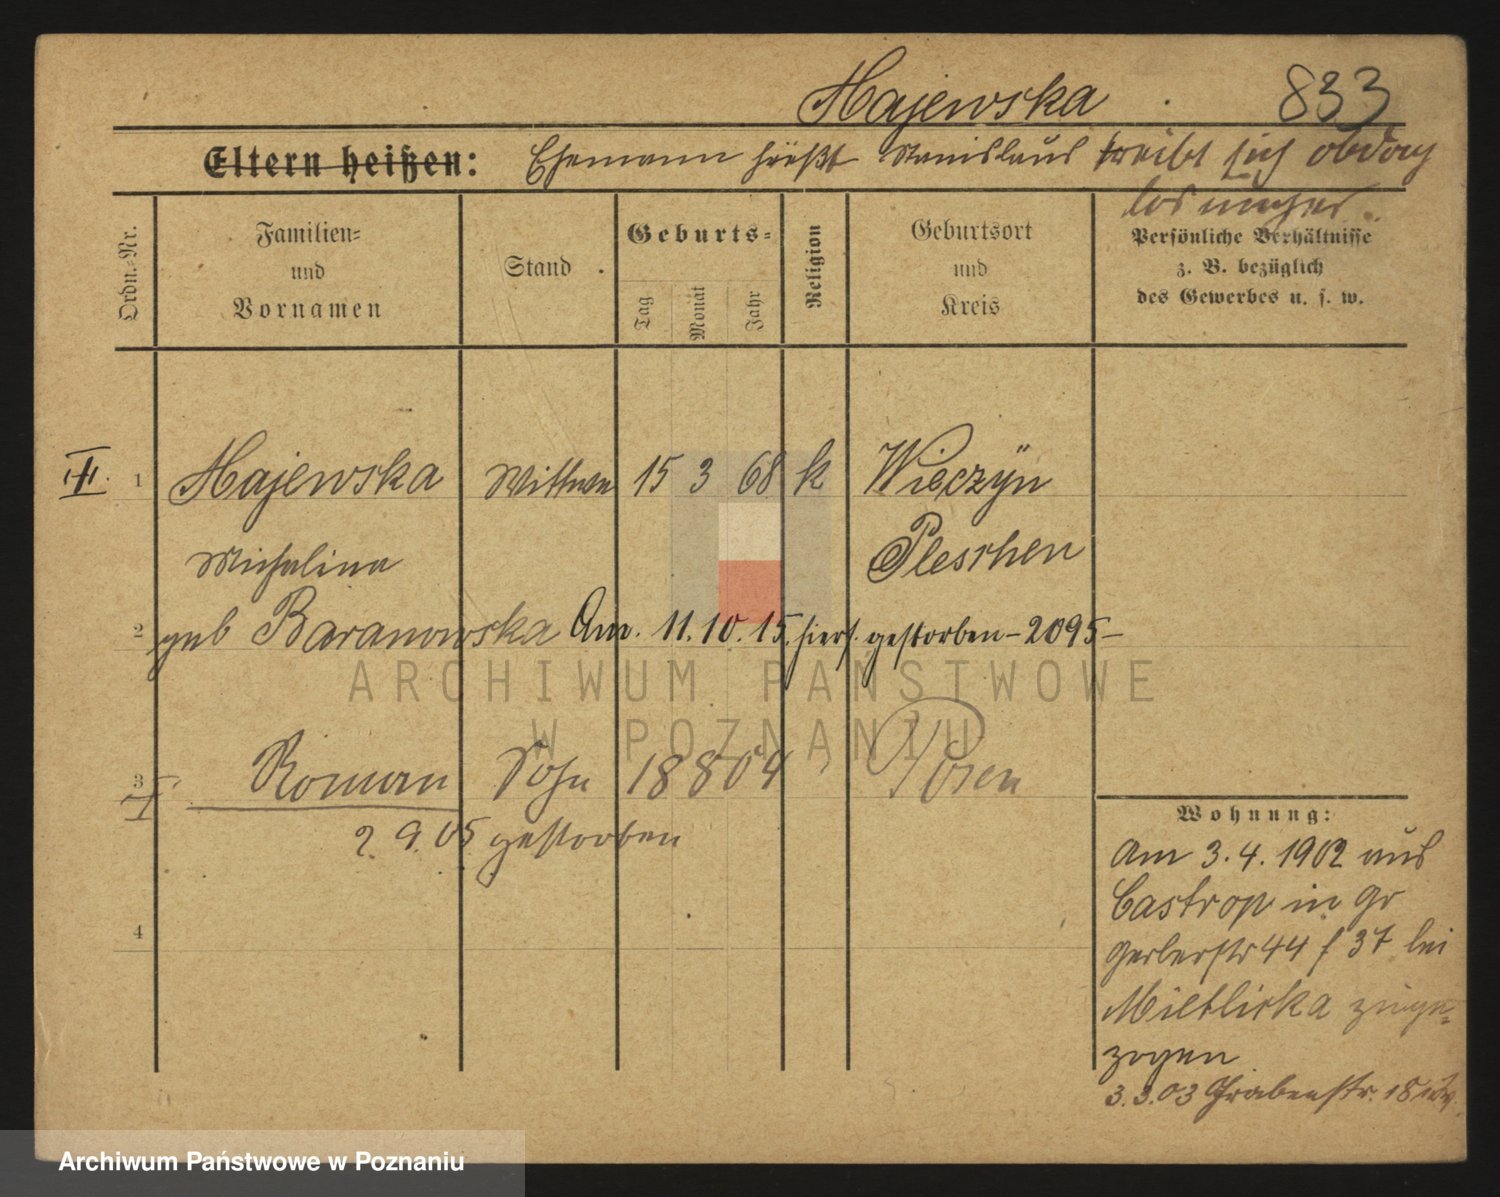 Majewska 833
Eltern heißen: Ehemann heißt Stanislaus treibt sich obdach
los umher
Ordn.-Nr.
Familien-
und
Vornamen
Stand
Geburts-
Tag
Monat
Jahr
Religion
Geburtsort
und
Kreis
Persönliche Verhältnisse
z. B. bezüglich
des Gewerbes u. s. w.
1 Majewska Wittwe 15 3 68 k Wieczyn
Michalina Pleschen
2 geb Baranowska Am. 11.10.15. hiers. gestorben - 2095 -
ARCHIWUM PAŃSTWOWE
W POZNANIU
3 Roman Sohn 18 8 04 Posen
2. 9. 05 gestorben
4
Wohnung:
Am 3.4.1902 aus
Castrop in Gr
Gerberstr 44 f 37 bei
Mietlicka zuge-
zogen
3.3.03 Grabenstr. 18
Archiwum Państwowe w Poznaniu